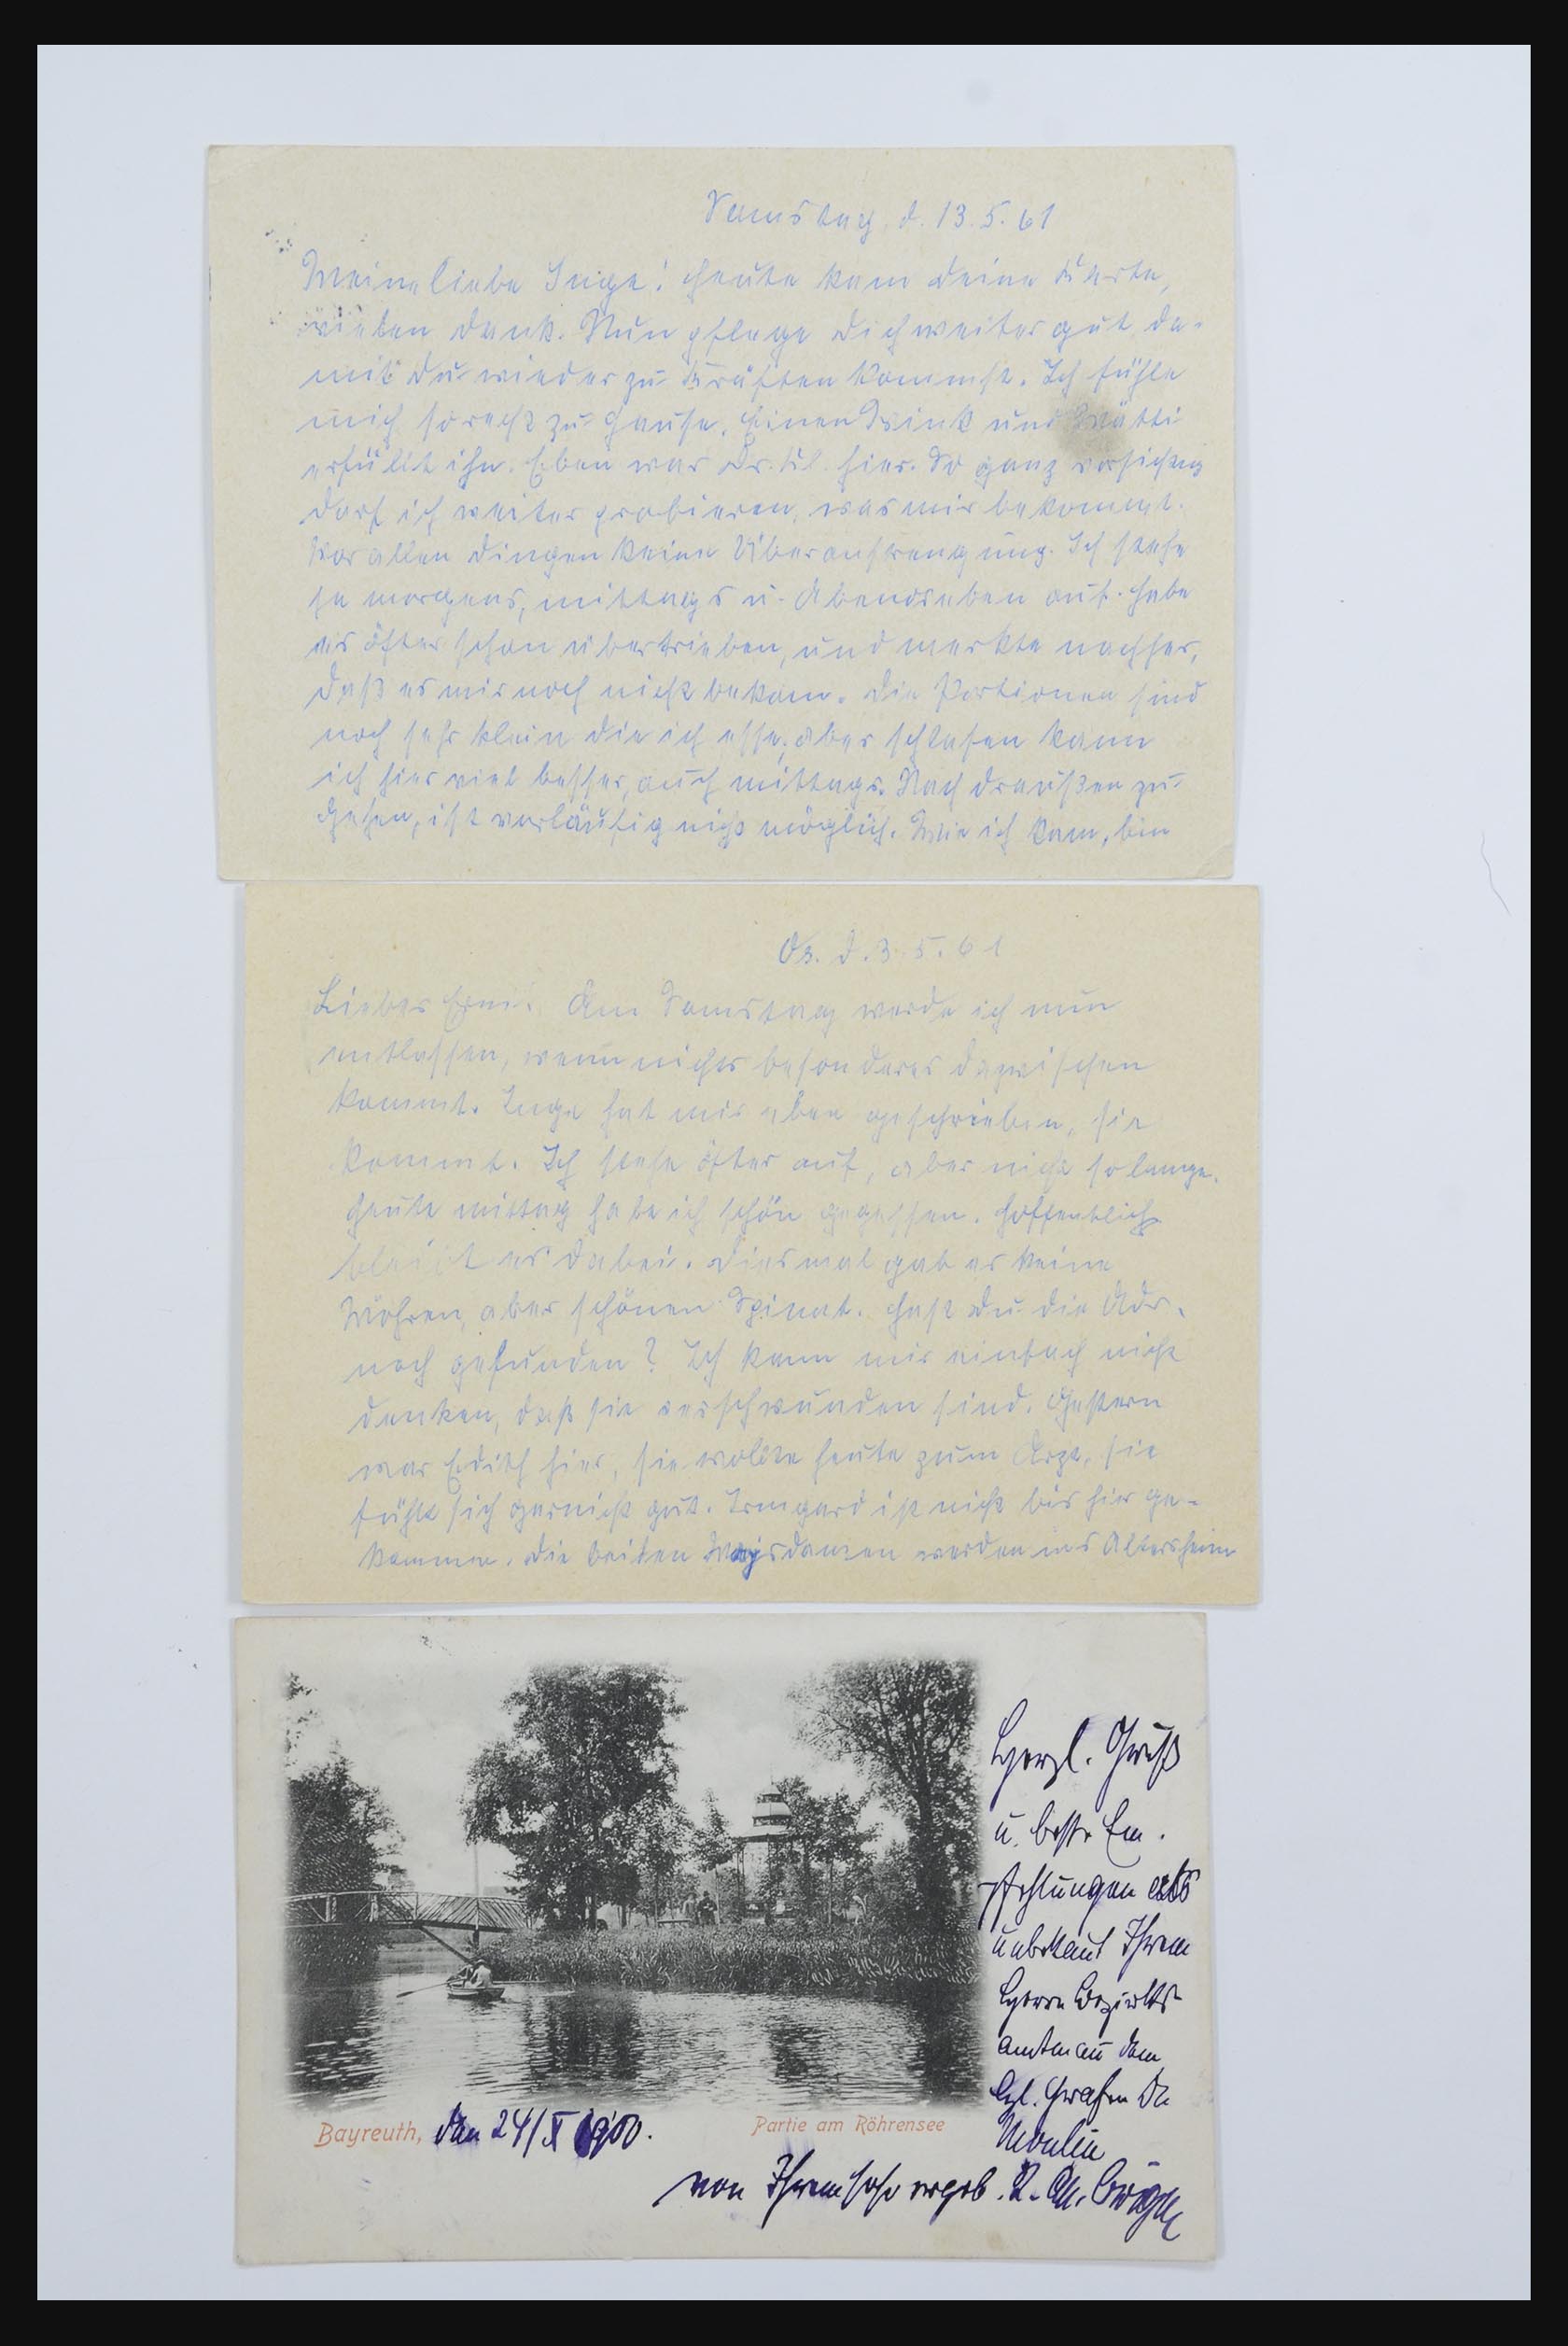 Samstag, d. 13.5.61
Meine liebe Inge! Heute kam deine Karte,
vielen Dank. Nun pflege dich weiter gut, da-
mit du wieder zu Kräften kommst. Ich fühle
mich so recht zu Hause. Einen Wink und Mutti
erfüllt ihn. Eben war Dr. Ul. hier. So ganz vorsichtig
darf ich weiter probieren, was mir bekommt.
Vor allen Dingen keine Überanstrengung. Ich stehe
ja morgens, mittags u. Abends eben auf. Habe
es öfter schon übertrieben, und merkte nachher,
daß es mir noch nicht bekam. Die Portionen sind
noch sehr klein die ich esse, aber schlafen kann
ich hier viel besser, auch mittags. Nach draußen zu-
gehen, ist vorläufig nicht möglich. Wie ich kam, bin
Os. d. 3.5.61
Lieber Erni! Am Samstag werde ich nun
entlassen, wenn nichts besonderes dazwischen
kommt. Inge hat mir eben geschrieben, sie
kommt. Ich stehe öfter auf, aber nicht so lange.
Heute mittag habe ich schön gegessen. Hoffentlich
bleibt es dabei. Diesmal gab es keine
Möhren, aber schönen Spinat. Hast du die Adr.
noch gefunden? Ich kann mir einfach nicht
denken, daß sie verschwunden sind. Gestern
war Edith hier, sie wollte heute zum Arzt, sie
fühlt sich garnicht gut. Irmgard ist nicht bis hier ge-
kommen. Die beiden werden ins Altersheim
Herzl. Gruß
u. beste Em-
pfehlungen
unbekannt Ihrem
Herrn Bezirks-
amtmann dem
Hgl. Grafen Du
Moulin
von Ihrem sehr ergeb.
Bayreuth, den 24/X 1900.
Partie am Röhrensee